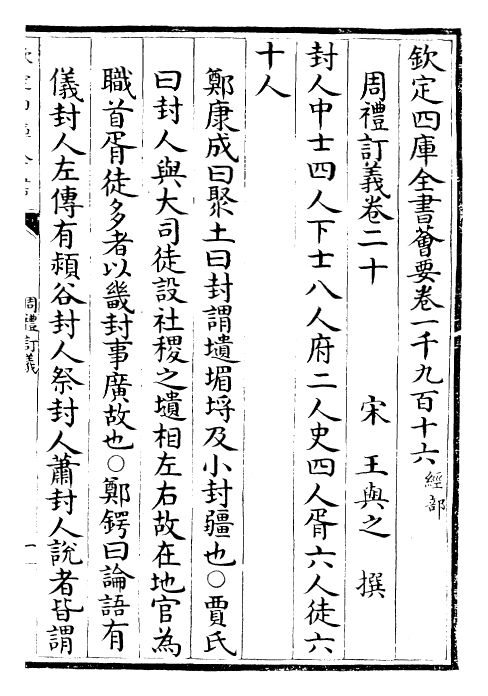 欽定四庫全書薈要卷一千九百十六 經部
周禮訂義卷二十 宋 王與之 撰
封人中士四人下士八人府二人史四人胥六人徒六
十人
鄭康成曰聚土曰封謂壝堳埒及小封疆也○賈氏
曰封人與大司徒設社稷之壝相左右故在地官為
職首胥徒多者以畿封事廣故也○鄭鍔曰論語有
儀封人左傳有潁谷封人祭封人蕭封人說者皆謂
周禮訂義
一